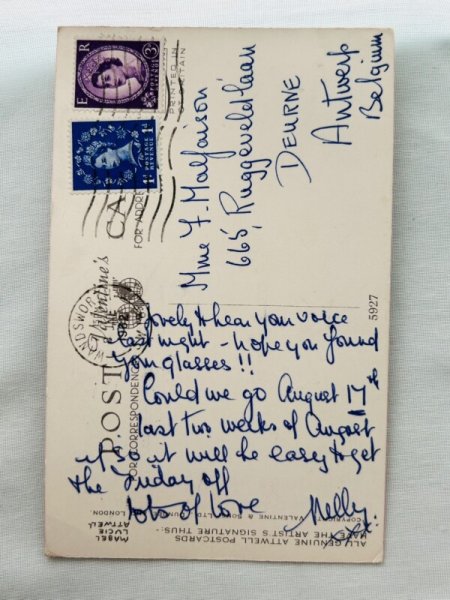 E R
3D
POSTAGE REVENUE
POSTAGE REVENUE
1D
PRINTED IN
BRITAIN
POST CA
FOR CORRESPONDENCE
FOR ADDRE
Valentine's
WANDSWOR
Mme F. Malfaison
665, Ruggeveldlaan
DEURNE
Antwerp
Belgium
5927
Lovely to hear your voice
last night - hope you found
your glasses!!
Could we go August 17th
last two weeks of August
so it will be easy to get
the Friday off
lots of love Nelly
xxx
ALL GENUINE ATTWELL POSTCARDS
HAVE THE ARTIST'S SIGNATURE THUS:-
MABEL
LUCIE
ATTWELL
COPYRIGHT VALENTINE & SONS LTD DUN LONDON